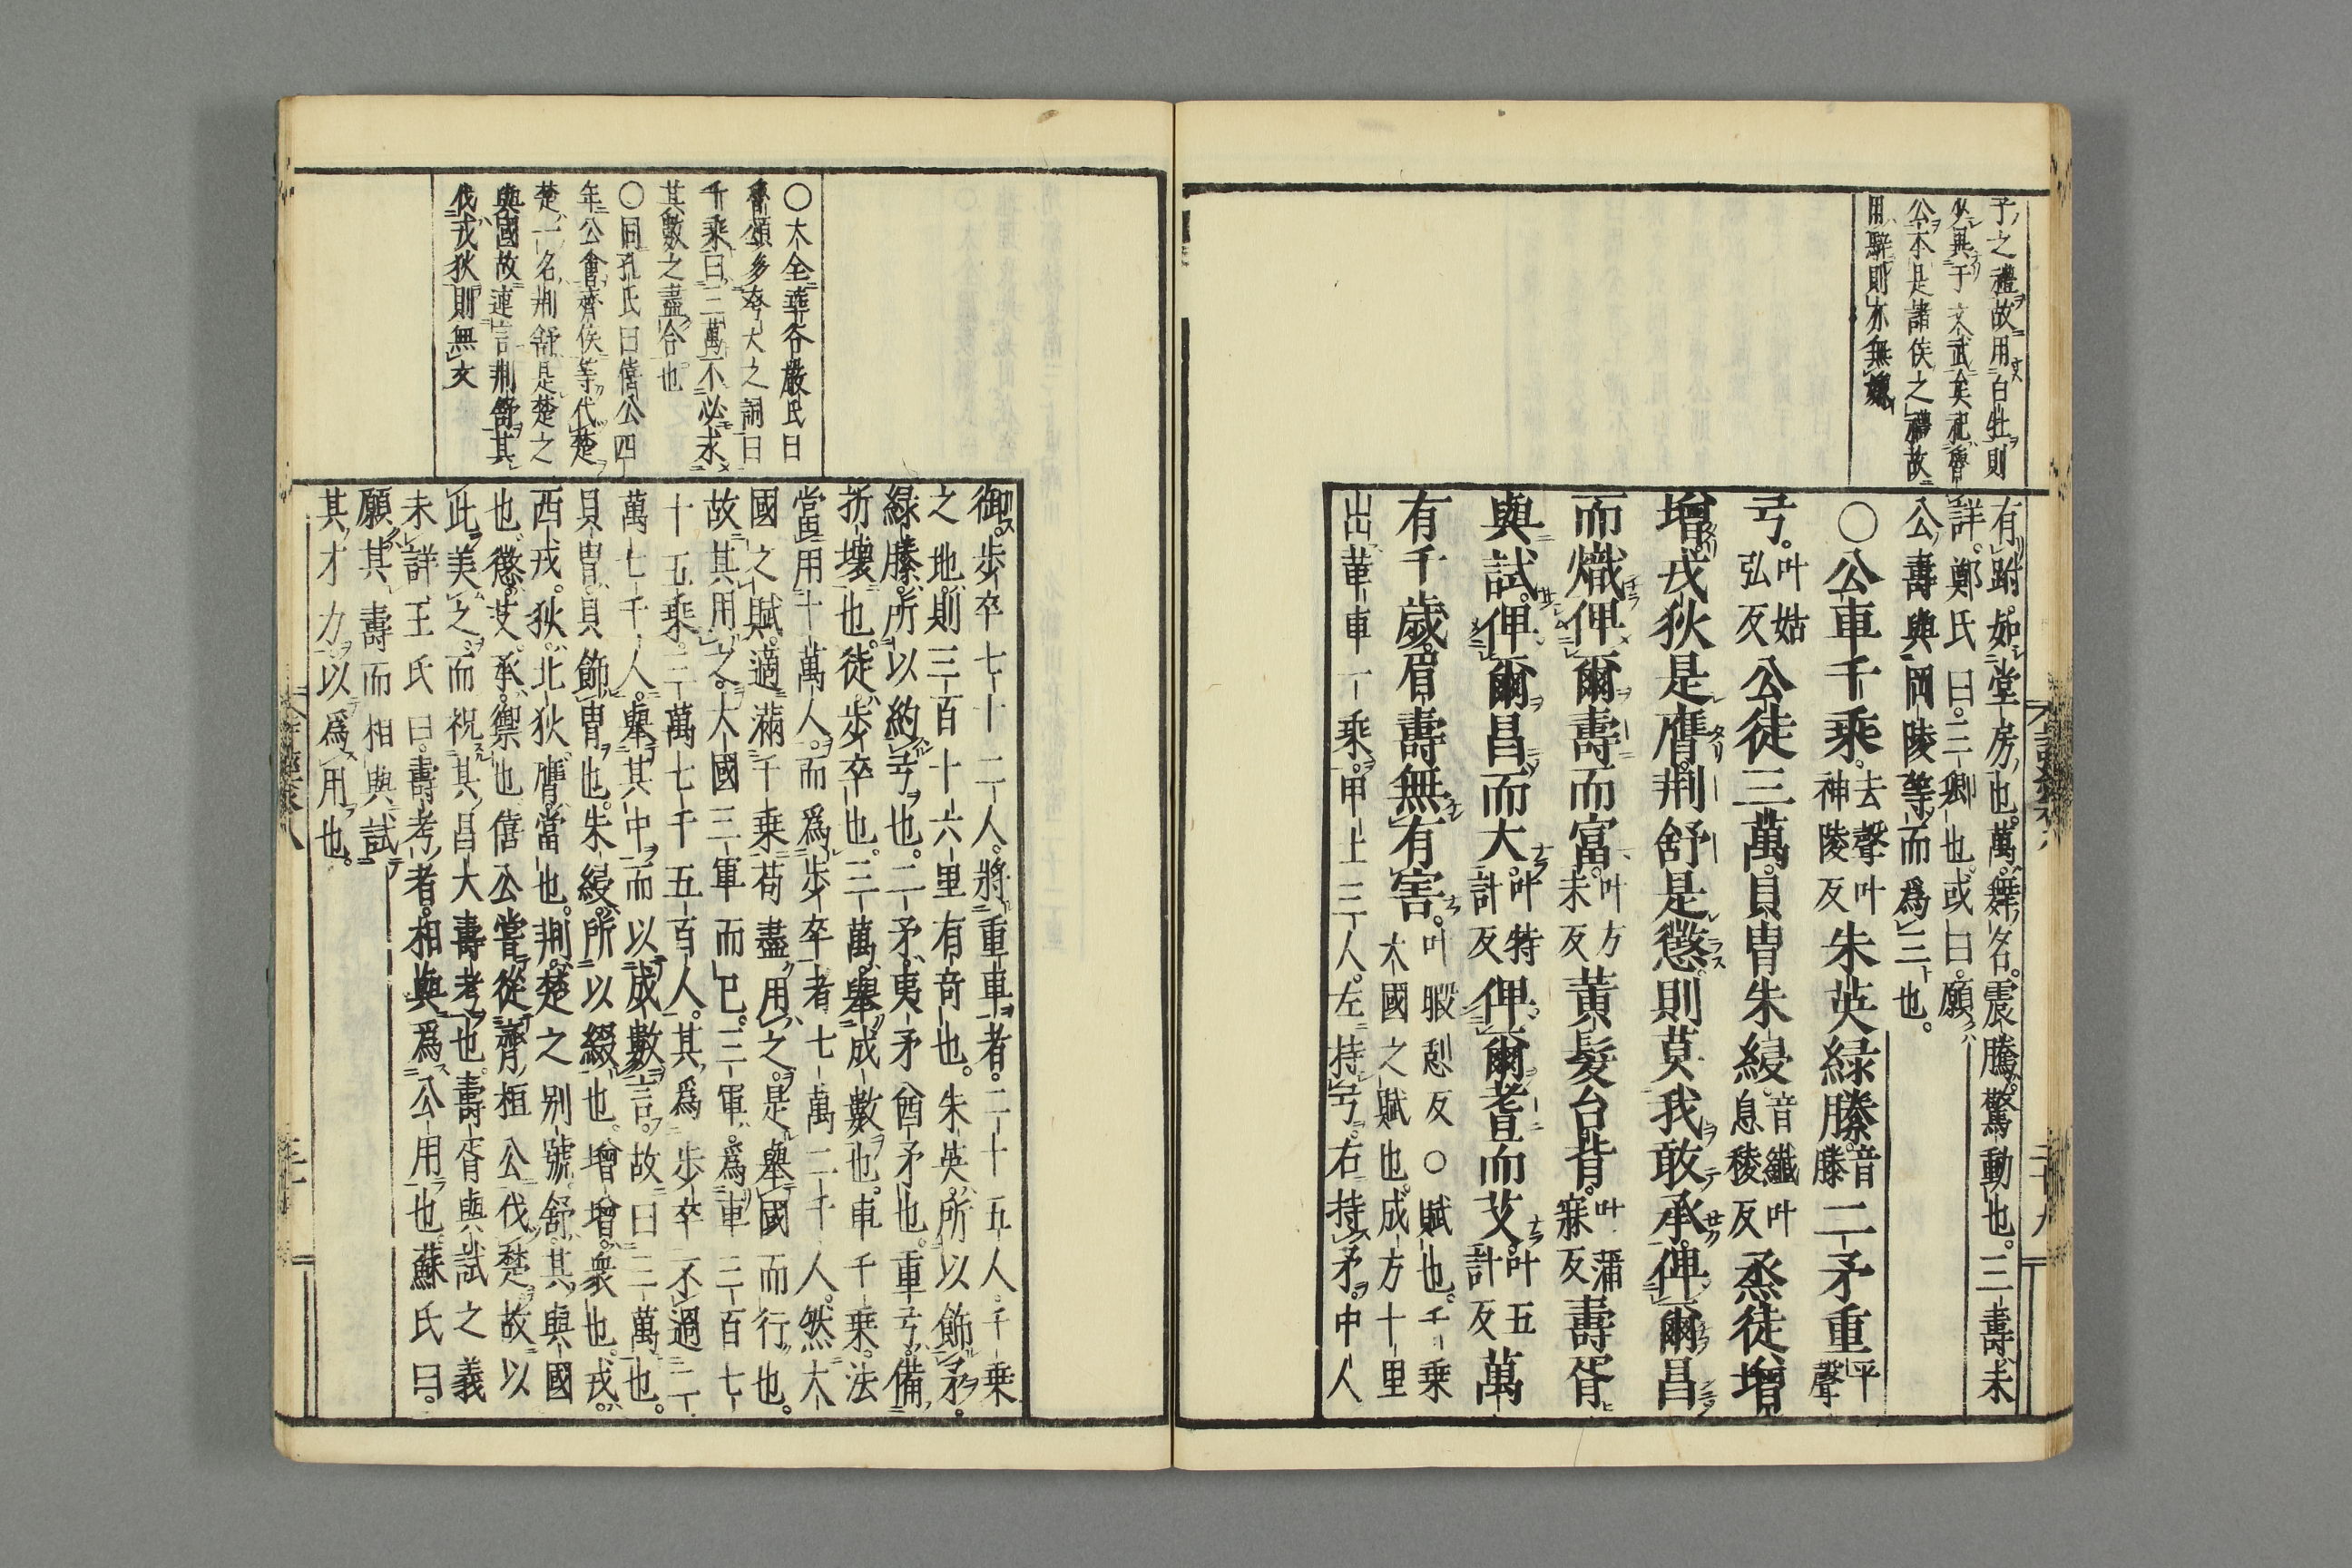 子之禮故用白牡則
公不是諸侯之禮故
用騂則亦無嫌
有跗如堂房也萬舞名震騰驚動也三壽未
詳鄭氏曰三卿也或曰願
公壽與岡陵等而爲三也
〇公車千乘去聲叶神陵反朱英綠縢音滕二矛重平聲
弓叶姑弘反公徒三萬貝冑朱綅音纖叶息稜反烝徒增
增戎狄是膺荆舒是懲則莫我敢承俾爾昌
而熾俾爾壽而富叶方未反黃髮台背叶蒲寐反壽胥
與試俾爾昌而大叶特計反俾爾耆而艾叶五計反萬
有千歲眉壽無有害叶暇憩反〇賦也千乘大國之賦也成方十里
出革車一乘甲上三人左持弓右持矛中人
〇大全華谷嚴氏曰
魯頌多夸大之詞曰
千乘曰三萬不必求
其數之盡合也
〇同孔氏曰僖公四
年公會齊侯等代楚
楚一名荆舒是楚之
與國故連言荆舒其
伐戎狄則無文
御步卒七十二人將重車者二十五人千乘
之地則三百十六里有奇也朱英所以飾矛
綠縢所以約弓也二矛夷矛酋矛也重弓備
折壞也徒步卒也三萬舉成數也車千乘法
當用十萬人而爲步卒者七萬二千人然大
國之賦適滿千乘苟盡用之是舉國而行也
故其用之大國三軍而已三軍爲車三百七
十五乘三萬七千五百人其爲步卒不過二
萬七千人舉其中而以成數言故曰三萬也
貝冑貝飾冑也朱綅所以綴也增增衆也戎
西戎狄北狄膺當也荆楚之別號舒其與國
也懲艾承禦也僖公嘗從齊桓公伐楚故以
此美之而祝其昌大壽考也壽胥與試之義
未詳王氏曰壽考者相與爲公用也蘇氏曰
願其壽而相與試
其才力以爲用也